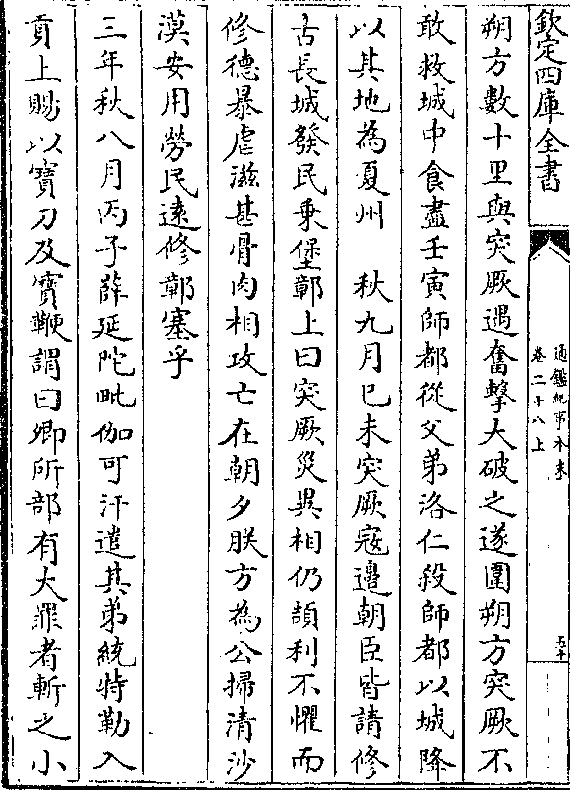 欽定四庫全書
通鑑紀事本末
卷二十八上
五十
朔方數十里與突厥遇奮擊大破之遂圍朔方突厥不
敢救城中食盡壬寅師都從父弟洛仁殺師都以城降
以其地為夏州　秋九月已未突厥寇邊朝臣皆請修
古長城發民乗堡鄣上曰突厥災異相仍頡利不懼而
修德暴虐滋甚骨肉相攻亡在朝夕朕方為公掃清沙
漠安用勞民逺修鄣塞乎
三年秋八月丙子薛延陀毗伽可汗遣其弟統特勒入
貢上賜以寶刀及寶鞭謂曰卿所部有大罪者斬之小